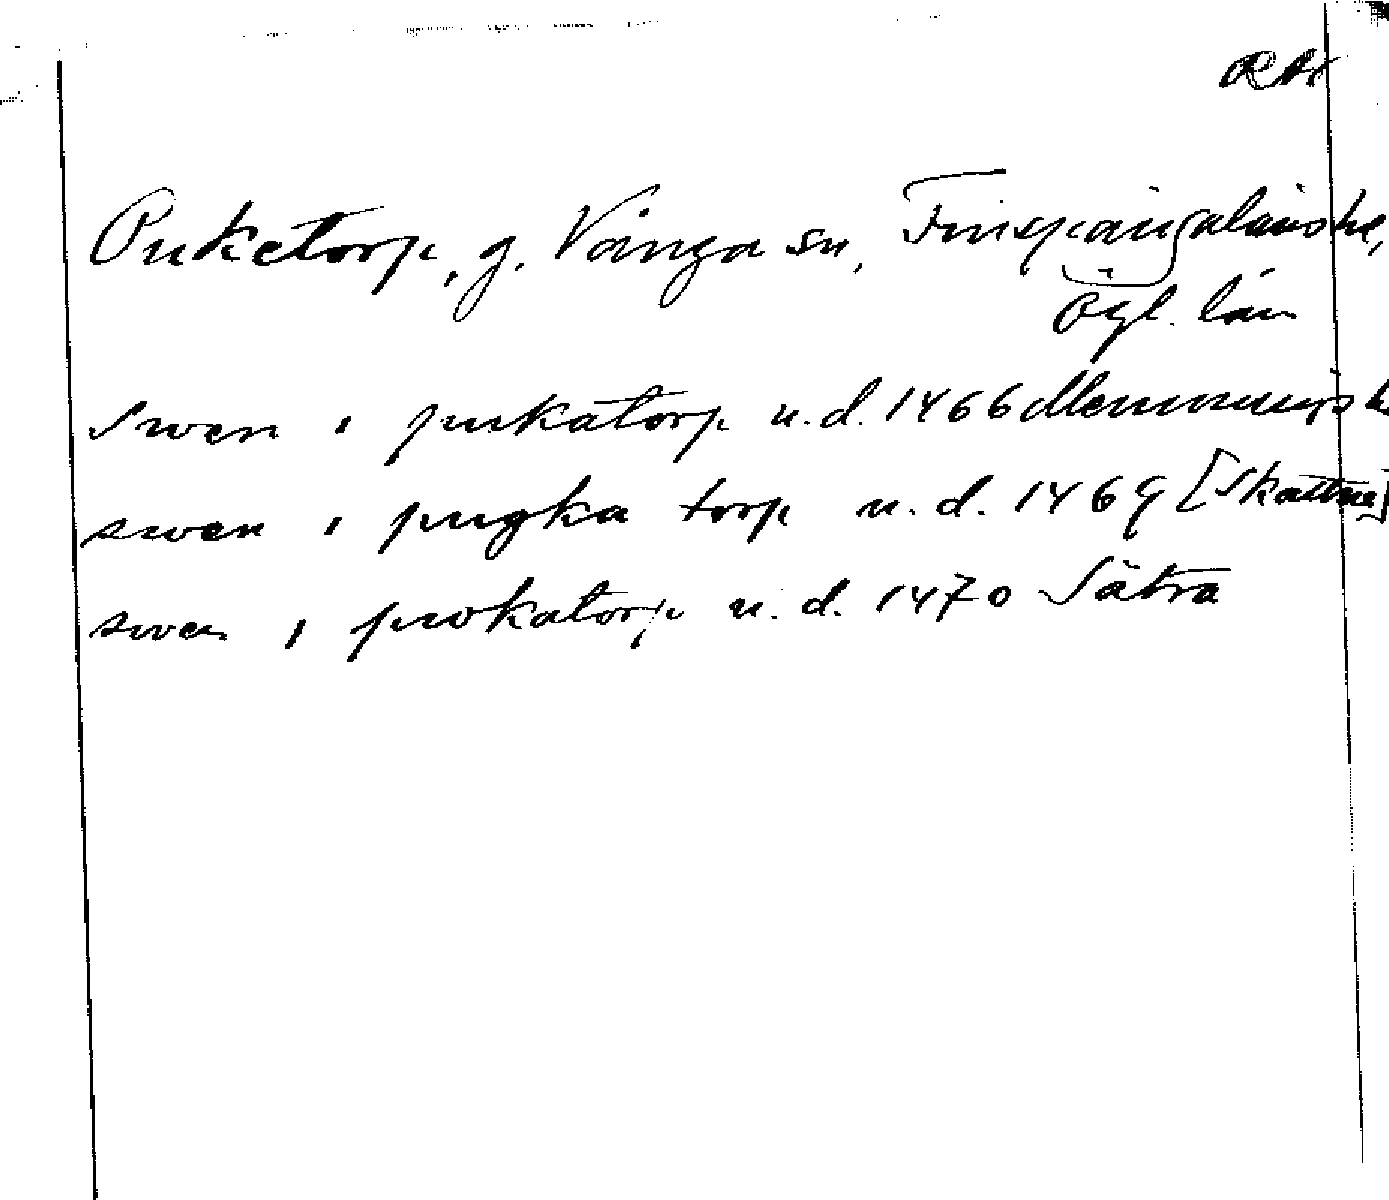 RA
Puketorp, g. Vånga sn, Finspångaläns hd,
Ögl. län
Swen i pukatorp u.d. 1466
swen i pugka torp u.d. 1469 [Skattne]
swen i pwkatorp u.d. 1470 Sätra